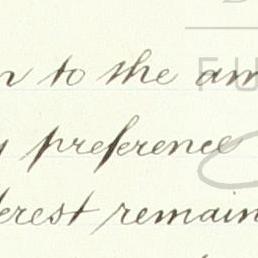 to the am
preference
erest remain